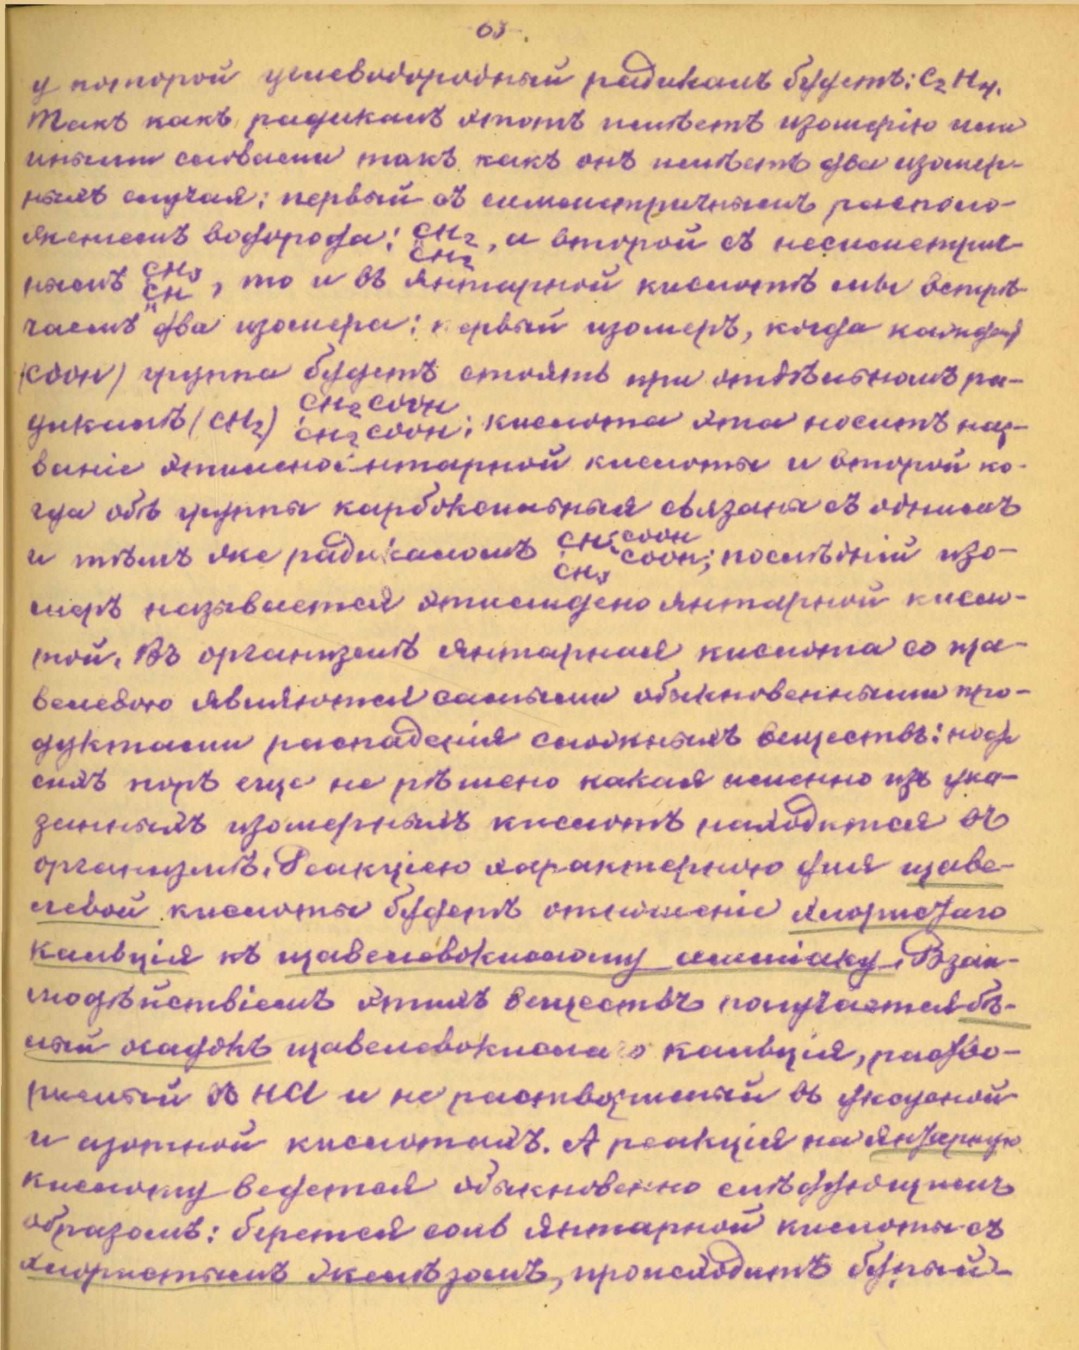 63.
у которой углеводородный радикалъ будетъ: C₂H₄.
Такъ какъ радикалъ этотъ имѣетъ изомерію или
иными словами такъ какъ онъ имѣетъ два изомер-
ныхъ случая: первый съ симметричнымъ располо-
женіемъ водорода: CH₂ CH₂, и второй съ несиметрич-
нымъ CH₃ CH, то и въ янтарной кислотѣ мы встрѣ-
чаемъ два изомера: первый изомеръ, когда каждая
(COOH) группа будетъ стоять при отдѣльномъ ра-
дикалѣ (CH₂) CH₂COOH CH₂COOH; кислота эта носитъ наз-
ваніе этиленоянтарной кислоты и второй ко-
гда обѣ группы карбоксильныя связаны съ однимъ
и тѣмъ же радикаломъ CH COOH COOH CH₃; послѣдній изо-
меръ называется этилидено янтарной кисло-
той. Въ организмѣ янтарная кислота со ща-
велевою являются самыми обыкновенными про-
дуктами распаденія сложныхъ веществъ: но до
сихъ поръ еще не рѣшено какая именно изъ ука-
занныхъ изомерныхъ кислотъ находится въ
организмѣ. Реакціею характерною для щаве-
левой кислоты будетъ отношеніе хлористаго
кальція къ щавелевокислому амміаку. Взаи-
модѣйствіемъ этихъ веществъ получается бѣ-
лый осадокъ щавелевокислаго кальція, раство-
римый въ HCl и не растворимый въ уксусной
и азотной кислотахъ. А реакція на янтарную
кислоту ведется обыкновенно слѣдующимъ
образомъ: берется соль янтарной кислоты съ
хлористымъ желѣзомъ, происходитъ бурый-